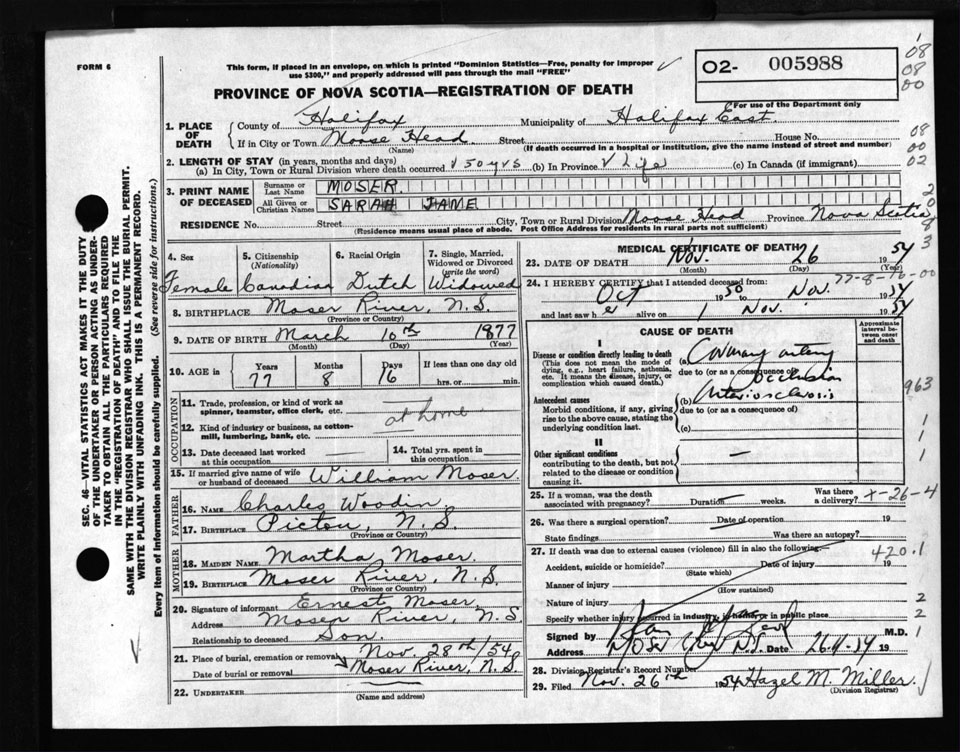 FORM 6
This form, if placed in an envelope, on which is printed "Dominion Statistics—Free, penalty for improper
use $300," and properly addressed will pass through the mail "FREE"
O2- 005988
For use of the Department only
PROVINCE OF NOVA SCOTIA—REGISTRATION OF DEATH
1. PLACE OF DEATH
County of Halifax Municipality of Halifax East
If in City or Town Moose Head Street House No.
(Name) (If death occurred in a hospital or institution, give the name instead of street and number)
2. LENGTH OF STAY (in years, months and days)
(a) In City, Town or Rural Division where death occurred 50 yrs (b) In Province Life (c) In Canada (if immigrant)
3. PRINT NAME OF DECEASED
Surname or Last Name MOSER
All Given or Christian Names SARAH JANE
RESIDENCE No. Street City, Town or Rural Division Moose Head Province Nova Scotia
(Residence means usual place of abode. Post Office Address for residents in rural parts not sufficient)
4. Sex 5. Citizenship (Nationality) 6. Racial Origin 7. Single, Married, Widowed or Divorced (write the word)
Female Canadian Dutch Widowed
8. BIRTHPLACE Moser River, N.S.
(Province or Country)
9. DATE OF BIRTH March 10th 1877
(Month) (Day) (Year)
10. AGE in Years Months Days If less than one day
77 8 16 hrs. or min.
OCCUPATION
11. Trade, profession, or kind of work as
spinner, teamster, office clerk, etc. at home
12. Kind of industry or business, as cotton-
mill, lumbering, bank, etc.
13. Date deceased last worked at this occupation
14. Total yrs. spent in this occupation
15. If married give name of wife
or husband of deceased William Moser.
FATHER
16. NAME Charles Woodin
17. BIRTHPLACE Pictou, N.S.
(Province or Country)
MOTHER
18. MAIDEN NAME Martha Moser.
19. BIRTHPLACE Moser River, N.S.
(Province or Country)
20. Signature of informant Ernest Moser
Address Moser River, N.S
Relationship to deceased Son.
21. Place of burial, cremation or removal Nov. 28th/54
Date of burial or removal Moser River, N.S.
22. UNDERTAKER
(Name and Address)
MEDICAL CERTIFICATE OF DEATH
23. DATE OF DEATH Nov. 26 1954
(Month) (Day) (Year)
77-8-16-00
24. I HEREBY CERTIFY that I attended deceased from:
Oct 1950 to Nov. 1954
and last saw her alive on 1 Nov. 1954
CAUSE OF DEATH
Approximate interval between onset and death
I
Disease or condition directly leading to death
(This does not mean the mode of
dying, e.g., heart failure, asthenia,
etc. It means the disease, injury, or
complication which caused death.)
(a) Coronary artery
due to (or as a consequence of)
occlusion
Antecedent causes
Morbid conditions, if any, giving
rise to the above cause, stating the
underlying condition last.
(b) Arteriosclerosis
due to (or as a consequence of)
(c)
II
Other significant conditions
contributing to the death, but not
related to the disease or condition
causing it.
25. If a woman, was the death
associated with pregnancy? Duration weeks. Was there a delivery?
x-26-4
26. Was there a surgical operation? Date of operation 19
State findings Was there an autopsy?
27. If death was due to external causes (violence) fill in also the following:
420.1
Accident, suicide or homicide? Date of injury 19
(State which)
Manner of injury
(How sustained)
Nature of injury
Specify whether injury occurred in industry, in home or in public place
Signed by M.D.
Address Date 19
28. Division Registrar's Record Number
29. Filed Nov. 26th 1954 Hazel M. Miller
(Division Registrar)
SEC. 46—VITAL STATISTICS ACT MAKES IT THE DUTY
OF THE UNDERTAKER OR PERSON ACTING AS UNDER-
TAKER TO OBTAIN ALL THE PARTICULARS REQUIRED
IN THE "REGISTRATION OF DEATH" AND TO FILE THE
SAME WITH THE DIVISION REGISTRAR WHO SHALL ISSUE THE BURIAL PERMIT.
WRITE PLAINLY WITH UNFADING INK. THIS IS A PERMANENT RECORD.
Every item of information should be carefully supplied. (See reverse side for instructions.)
08
08
00
08
00
02
963
1
1
1
2
2
1